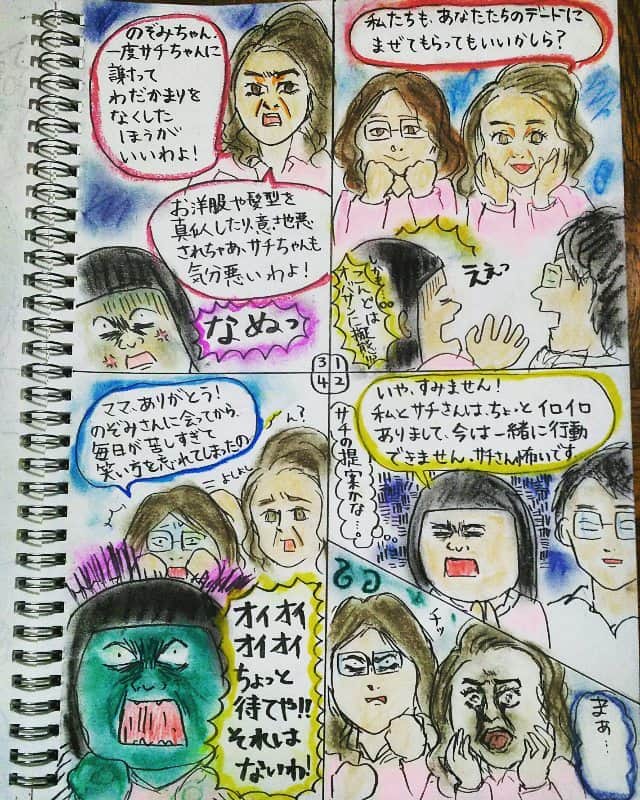 私たちも、あなたたちのデートに
まぜてもらってもいいかしら？
ええっ
いや、すみません！
私とサチさんは、ちょっとイロイロ
ありまして、今は一緒に行動
できません。サチさん怖いです。
サチの
提案かな…。
チッ
まぁ…
のぞみちゃん、
一度サチちゃんに
謝って
わだかまりを
なくした
ほうが
いいわよ！
お洋服や髪型を
真似したり、意地悪
されちゃあ、サチちゃんも
気分悪いわよ！
なぬっ
ママ、ありがとう！
のぞみさんに会ってから、
毎日が苦しすぎて
笑い方を忘れてしまったの
ん？
よしよし
オイオイ
オイオイ
ちょっと
待てや!!
それは
ないわ!
3 1
4 2